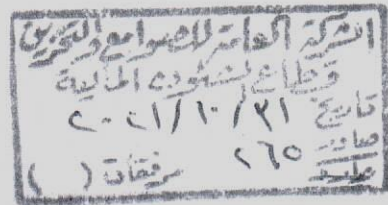 الشركة العامة للصوامع والتخزين
قطاع الشئون المالية
تاريخ ٣١/١٠/٢٠٢١
صادر ٢٦٥ مرفقات ( )